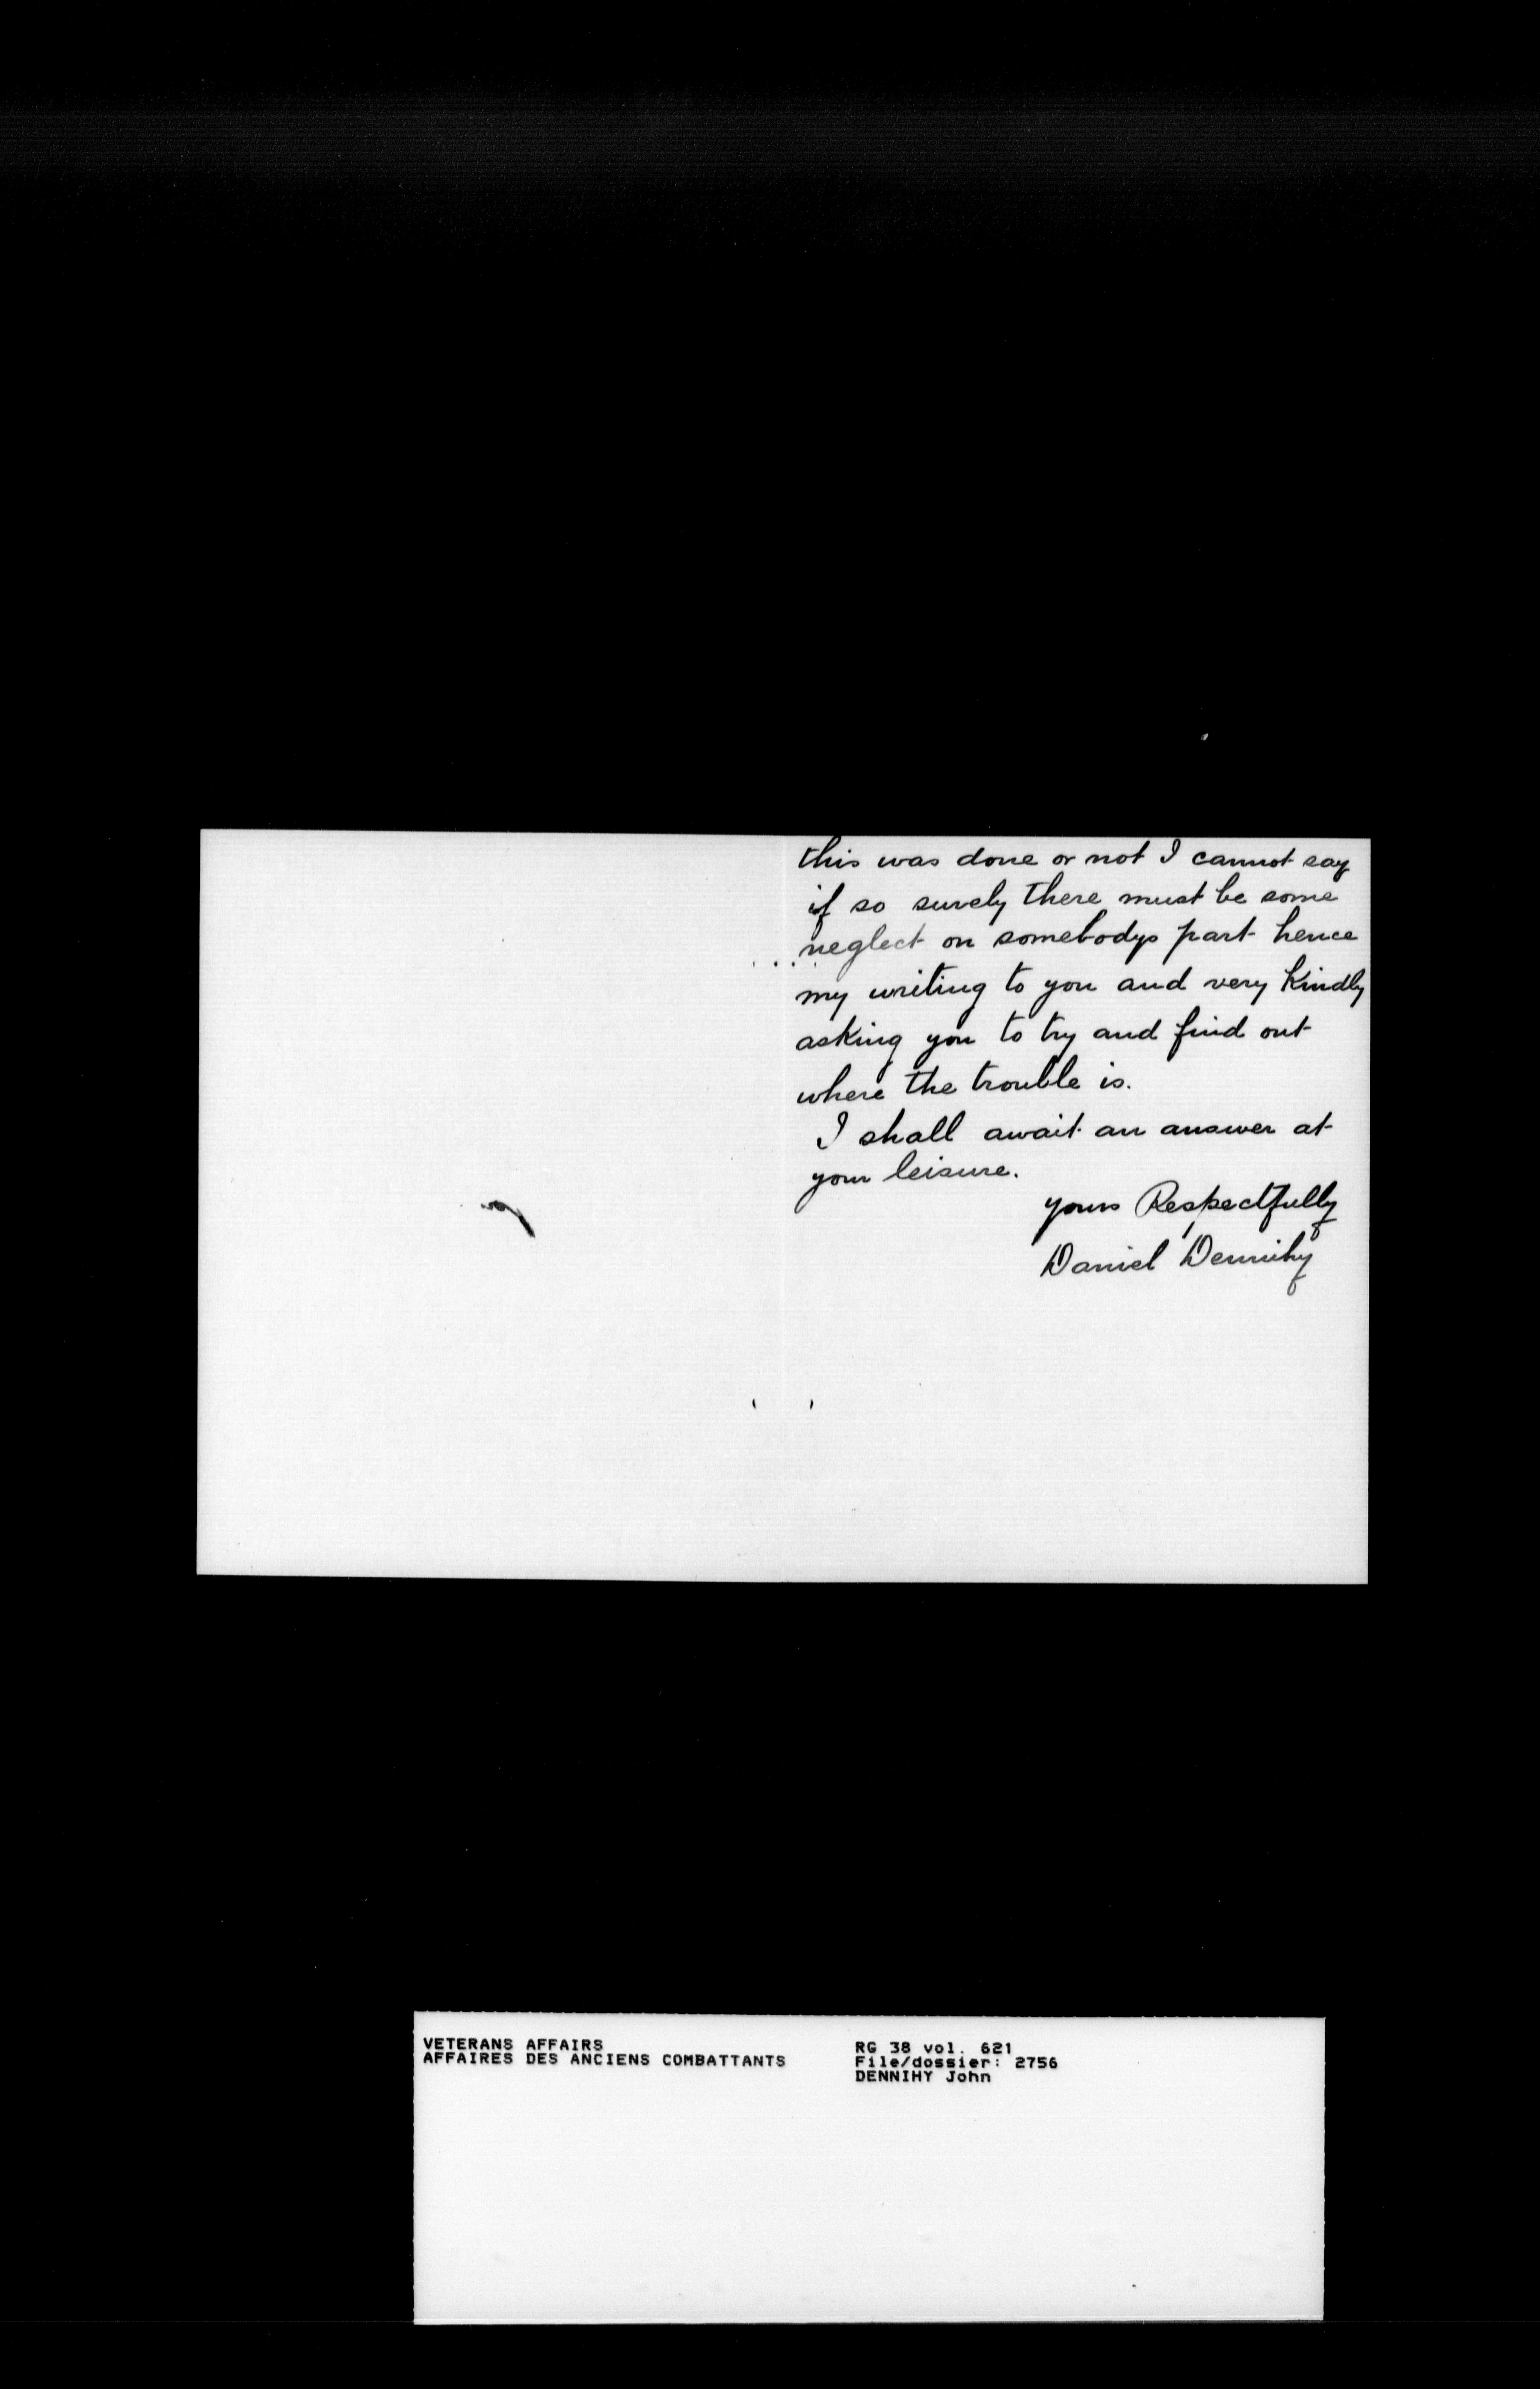 this was done or not I cannot say
if so surely there must be some
neglect on somebodys part hence
my writing to you and very kindly
asking you to try and find out
where the trouble is.
I shall await an answer at
your leisure.
yours Respectfully
Daniel Dennihy
VETERANS AFFAIRS
AFFAIRES DES ANCIENS COMBATTANTS
RG 38 vol. 621
File/dossier: 2756
DENNIHY John